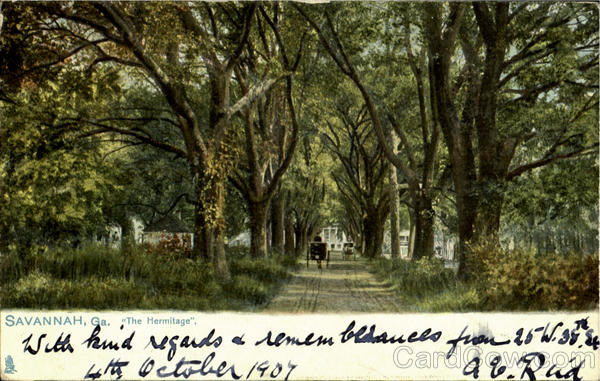 SAVANNAH, Ga. "The Hermitage".
With kind regards & remembrances from 25 W. 38th St
4th October 1907 A.C.
CardCow.com